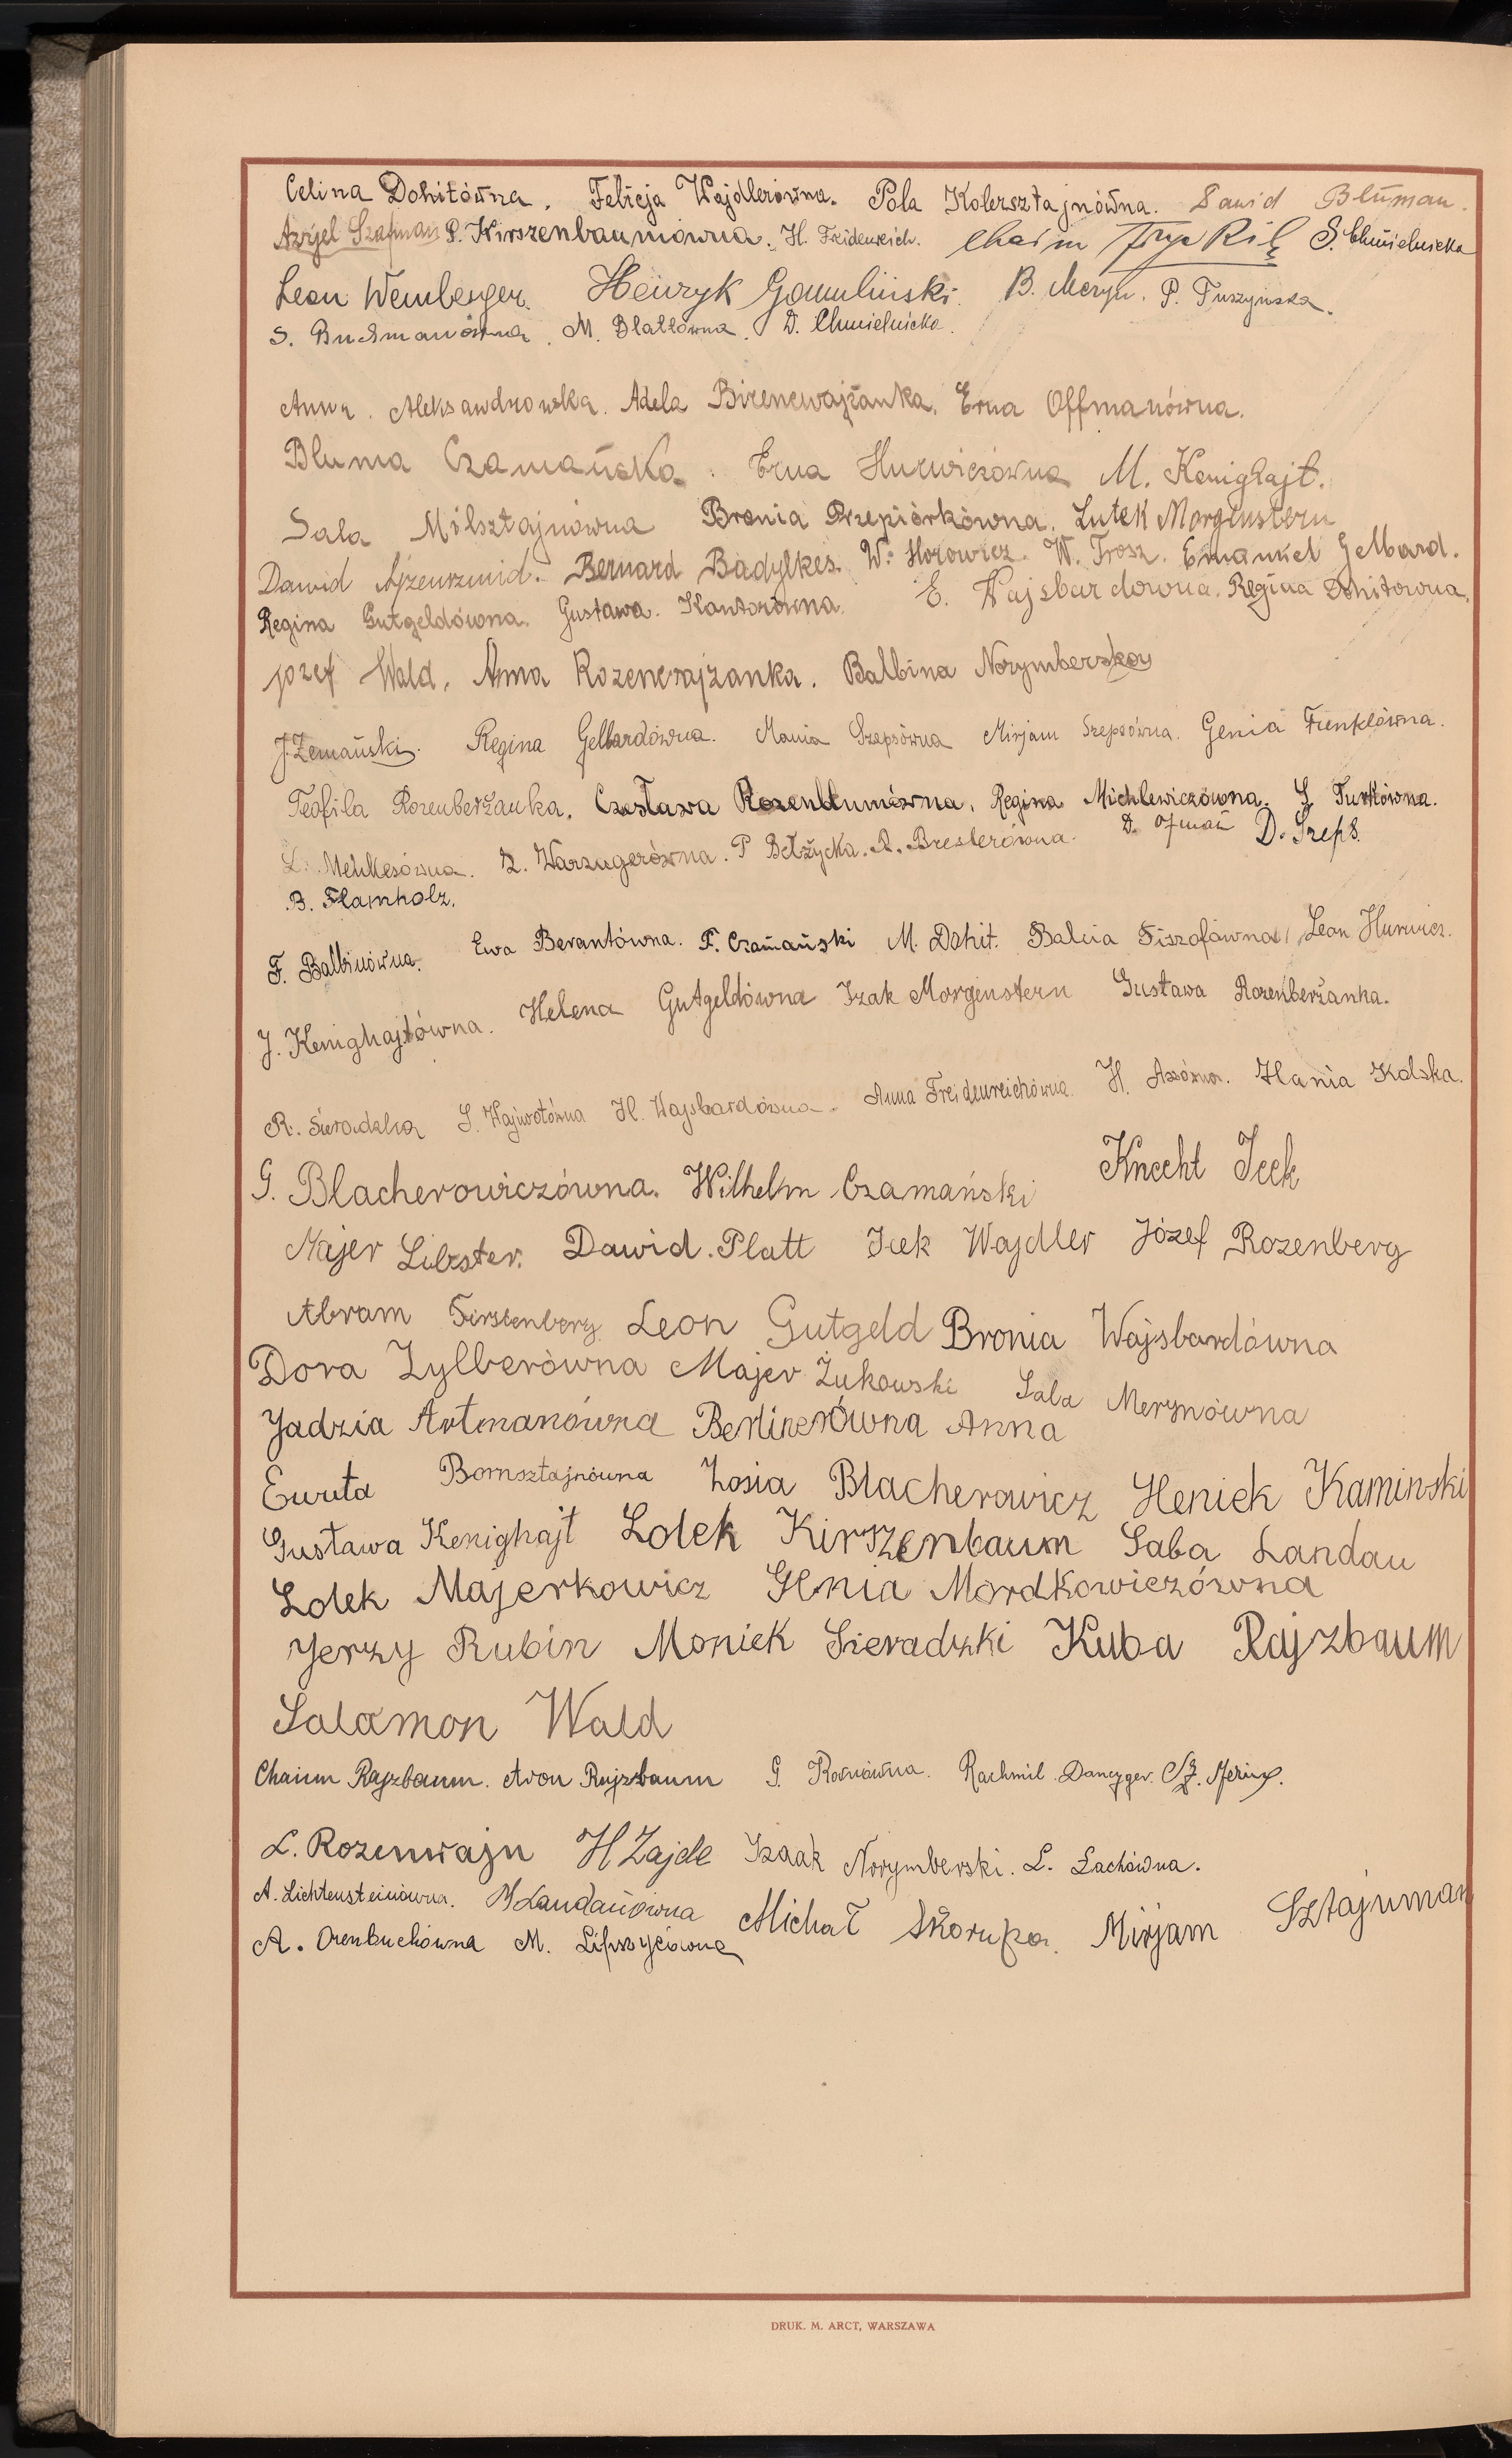 Celina Dohitówna. Felicja Wajdlerówna. Pola Kolersztajnówna. Dawid Bluman.
Azrjel Szafman P. Kirszenbaumówna. H. Freidenreich. Chaim S. Chmielnicka
Leon Weinberger. Henryk Gomuliński. B. Meryn. P. Tuszyńska.
S. Buchmanówna. M. Blattówna. D. Chmielnicka.
Anna. Aleksandrowska. Adela Birencwajżanka. Erna Offmanówna.
Bluma Czamańska. Erna Hurwiczówna M. Kenighajt.
Sala Milsztajnówna Bronia Przepiórkówna. Lutek Morgenstern
Dawid Ajzenszmid. Bernard Badylkes. W. Horowicz. W. Frosz. Emanuel Gelbard.
Regina Gutgeldówna. Gustawa. Kantorówna. E. Wajsbardówna. Regina Dohitówna.
Józef Wald. Anna Rozencwajżanka. Balbina Norymberska
J. Zemański. Regina Gelbardówna. Mania Szepsówna Mirjam Szepsówna. Genia Frenklówna.
Teofila Rozenberżanka. Czesława Rozenblumówna. Regina Michlewiczówna. S. Turkówna.
L. Mehlesówna. Z. Warzagerówna. P Bełżycka. R. Breslerówna. D. Ofman D. Szeps.
B. Flamholz.
F. Balbinówna. Ewa Berantówna. F. Czamański M. Dohit. Balcia Fiszofówna Leon Hurwicz.
J. Kenighajtówna. Helena Gutgeldówna Izak Morgenstern Gustawa Rozenberżanka.
R. Sieradzka S. Hajwotówna H. Wajsbardówna. Anna Freidenreichówna. H. Assówna. Hania Kolska.
G. Blacherowiczówna. Wilhelm Czamański Knecht Icek
Majer Libszter. Dawid. Platt Icek Wajdler Józef Rozenberg
Abram Firstenberg Leon Gutgeld Bronia Wajsbardówna
Dora Zylberówna Majer Żukowski Sala Merynówna
Jadzia Artmanówna Berlinerówna Anna
Ewuta Bornsztajnówna Zosia Blacherowicz Heniek Kaminski
Gustawa Kenighajt Lolek Kirszenbaum Saba Landau
Lolek Majerkowicz Genia Mordkowiczówna
Jerzy Rubin Moniek Sieradzki Kuba Rajzbaum
Salomon Wald
Chaim Rajzbaum. Aron Rajzbaum G. Ronówna. Rachmil. Dancyger.
L. Rozenwajn H Zajde Izaak Norymberski. L. Lachówna.
A. Lichtensteinówna. M Landauówna Michał Skorupa. Mirjam Sztajnman
A. Orenbuchówna M. Lipszycówna
DRUK. M. ARCT, WARSZAWA